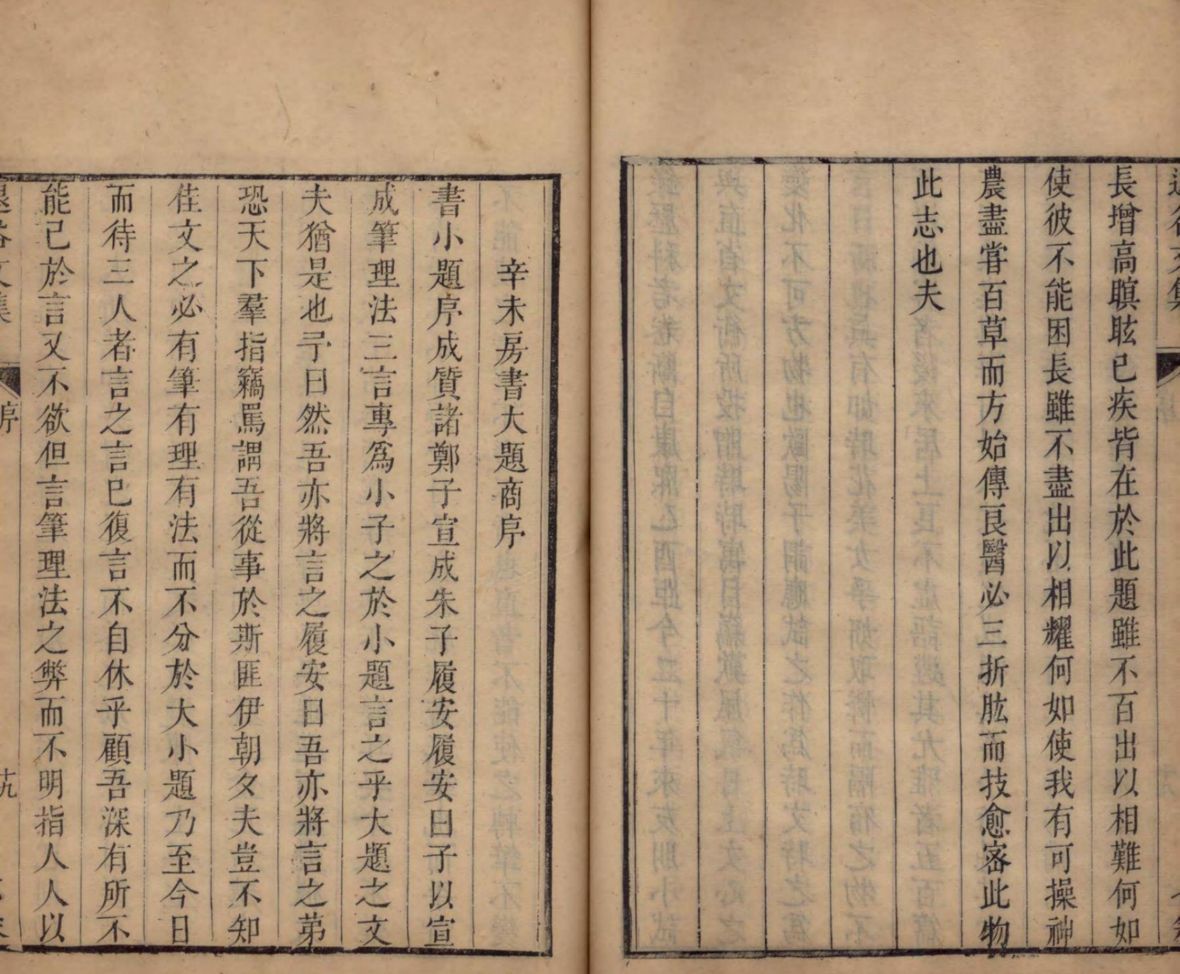 長增高瞑眩已疾皆在於此題雖不百出以相難何如
使彼不能困長雖不盡出以相耀何如使我有可操神
農盡甞百草而方始傳良醫必三折肱而技愈密此物
此志也夫
辛未房書大題商序
書小題序成質諸鄭子宣成朱子履安履安曰子以宣
成筆理法三言專爲小子之於小題言之乎大題之文
夫猶是也予曰然吾亦將言之履安曰吾亦將言之弟
恐天下羣指竊罵謂吾從事於斯匪伊朝夕夫豈不知
佳文之必有筆有理有法而不分於大小題乃至今日
而待三人者言之言已復言不自休乎顧吾深有所不
能已於言又不欲但言筆理法之弊而不明指人人以
序